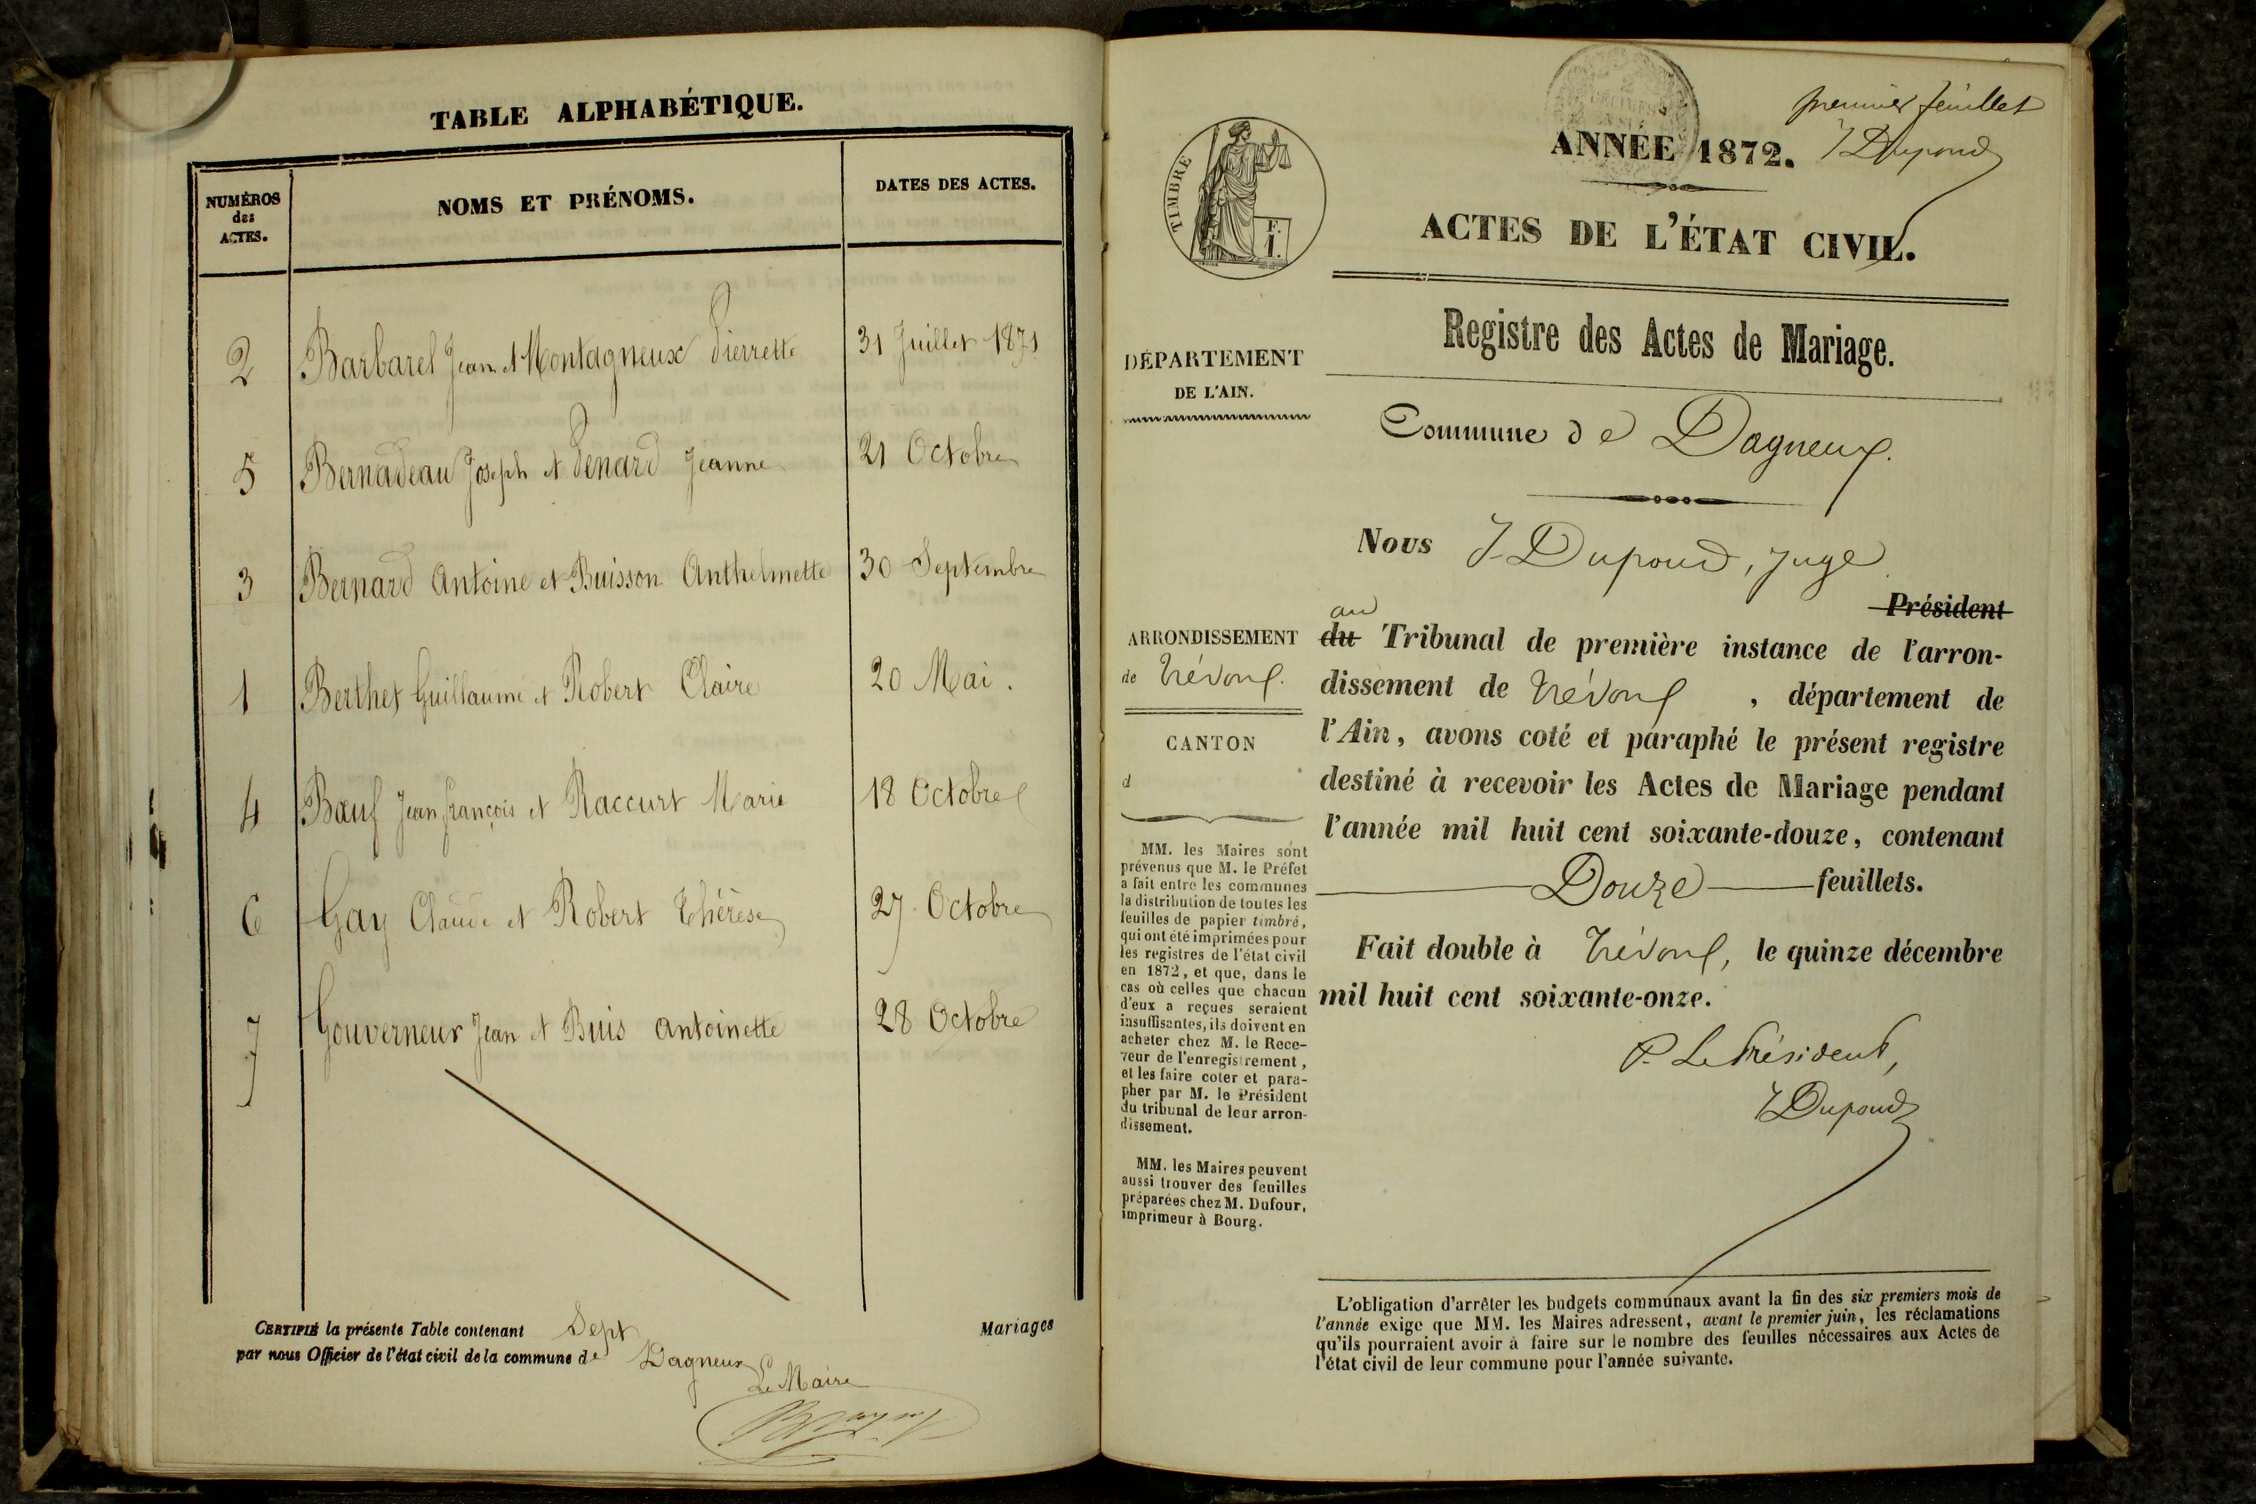 TABLE ALPHABÉTIQUE.
NUMÉROS des ACTES.
NOMS ET PRÉNOMS.
DATES DES ACTES.
2 Barbarel Jean et Montagneux Pierrette 31 Juillet 1871
5 Bernadeau Joseph et Penard Jeanne 21 Octobre
3 Bernard Antoine et Buisson Anthelmette 30 Septembre
1 Berthet Guillaume et Robert Claire 20 Mai.
4 Bœuf Jean françois et Raccurt Marie 18 Octobre
6 Gay Claude et Robert Thérèse 27 Octobre
7 Gouverneur Jean et Buis Antoinette 28 Octobre
CERTIFIÉ la présente Table contenant Sept Mariages
par nous Officier de l'état civil de la commune de Dagneux
Le Maire
premier feuillet
J Dupond
TIMBRE
F.
1.
ANNÉE 1872.
ACTES DE L'ÉTAT CIVIL.
Registre des Actes de Mariage.
DÉPARTEMENT
DE L'AIN.
Commune de Dagneux.
Nous J. Dupond, juge
Président
au
ARRONDISSEMENT
de Trévoux.
CANTON
d
du Tribunal de première instance de l'arron-
dissement de Trévoux, département de
l'Ain, avons coté et paraphé le présent registre
destiné à recevoir les Actes de Mariage pendant
l'année mil huit cent soixante-douze, contenant
Douze feuillets.
Fait double à Trévoux, le quinze décembre
mil huit cent soixante-onze.
P. Le Président,
J Dupond
MM. les Maires sont
prévenus que M. le Préfet
a fait entre les communes
la distribution de toutes les
feuilles de papier timbré,
qui ont été imprimées pour
les registres de l'état civil
en 1872, et que, dans le
cas où celles que chacun
d'eux a reçues seraient
insuffisantes, ils doivent en
acheter chez M. le Rece-
veur de l'enregistrement,
et les faire coter et para-
pher par M. le Président
du tribunal de leur arron-
dissement.
MM. les Maires peuvent
aussi trouver des feuilles
préparées chez M. Dufour,
imprimeur à Bourg.
L'obligation d'arrêter les budgets communaux avant la fin des six premiers mois de
l'année exige que MM. les Maires adressent, avant le premier juin, les réclamations
qu'ils pourraient avoir à faire sur le nombre des feuilles nécessaires aux Actes de
l'état civil de leur commune pour l'année suivante.